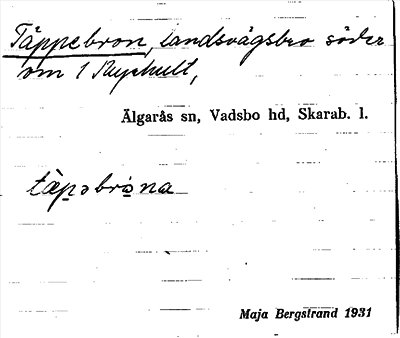 Täppebron, landsvägsbro söder
om 1 Ryphult,
Älgarås sn, Vadsbo hd, Skarab. l.
Maja Bergstrand 1931